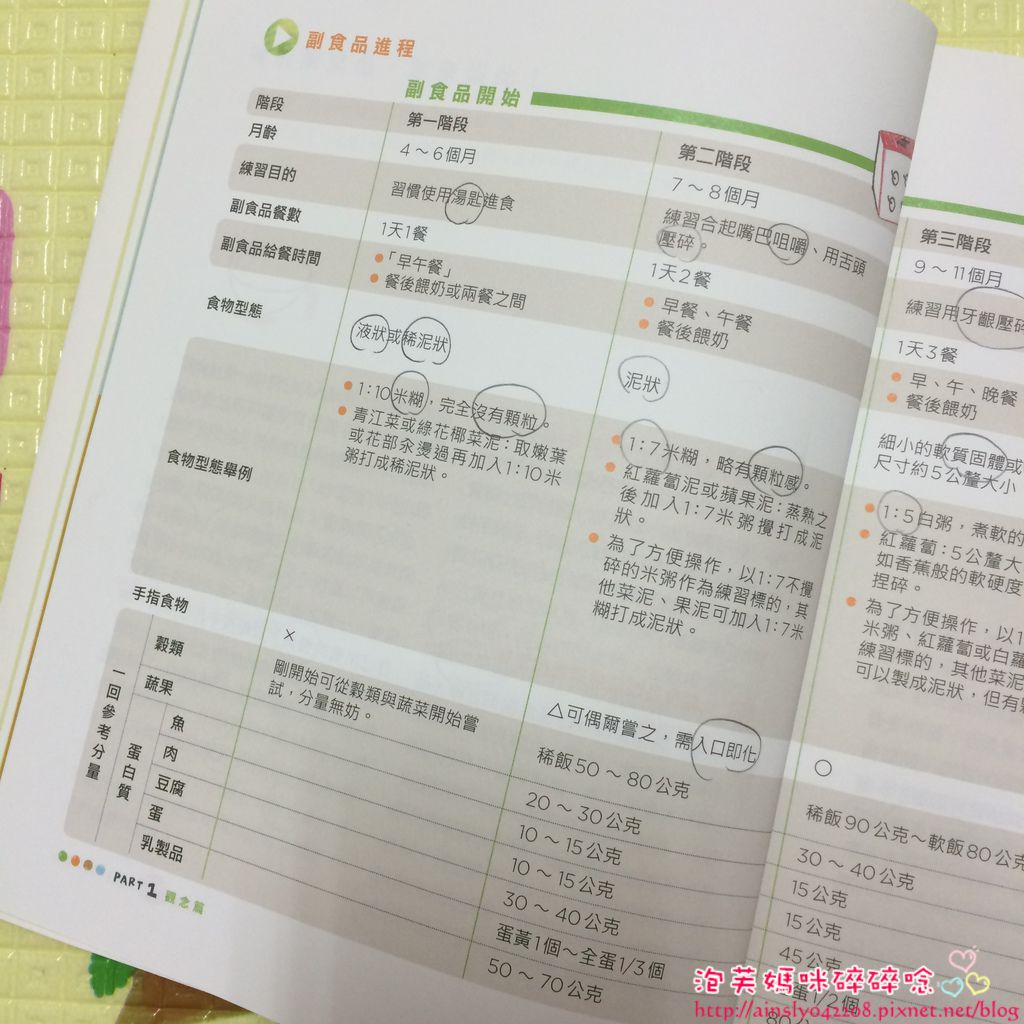 副食品進程
副食品開始
階段
第一階段
第二階段
第三階段
月齡
4～6個月
7～8個月
9～11個月
練習目的
習慣使用湯匙進食
練習合起嘴巴咀嚼、用舌頭
壓碎。
練習用牙齦壓碎
副食品餐數
1天1餐
1天2餐
1天3餐
副食品給餐時間
「早午餐」
餐後餵奶或兩餐之間
早餐、午餐
餐後餵奶
早、午、晚餐
餐後餵奶
食物型態
液狀或稀泥狀
泥狀
細小的軟質固體或
尺寸約5公釐大小
食物型態舉例
1：10米糊，完全沒有顆粒。
青江菜或綠花椰菜泥：取嫩葉
或花部汆燙過再加入1：10米
粥打成稀泥狀。
1：7米糊，略有顆粒感。
紅蘿蔔泥或蘋果泥：蒸熟之
後加入1：7米粥攪打成泥
狀。
為了方便操作，以1：7不攪
碎的米粥作為練習標的，其
他菜泥、果泥可加入1：7米
糊打成泥狀。
1：5白粥，煮軟的
紅蘿蔔：5公釐大
如香蕉般的軟硬度
捏碎。
為了方便操作，以1
米粥、紅蘿蔔或白蘿
練習標的，其他菜泥
可以製成泥狀，但有
手指食物
×
△可偶爾嘗之，需入口即化
○
一回參考分量
穀類
剛開始可從穀類與蔬菜開始嘗
試，分量無妨。
稀飯50～80公克
稀飯90公克～軟飯80公克
蔬果
20～30公克
30～40公克
蛋白質
魚
10～15公克
15公克
肉
10～15公克
15公克
豆腐
30～40公克
45公克
蛋
蛋黃1個～全蛋1/3個
蛋1/2個
乳製品
50～70公克
80公
PART 1 觀念篇
泡芙媽咪碎碎唸
http://ainslyo42268.pixnet.net/blog